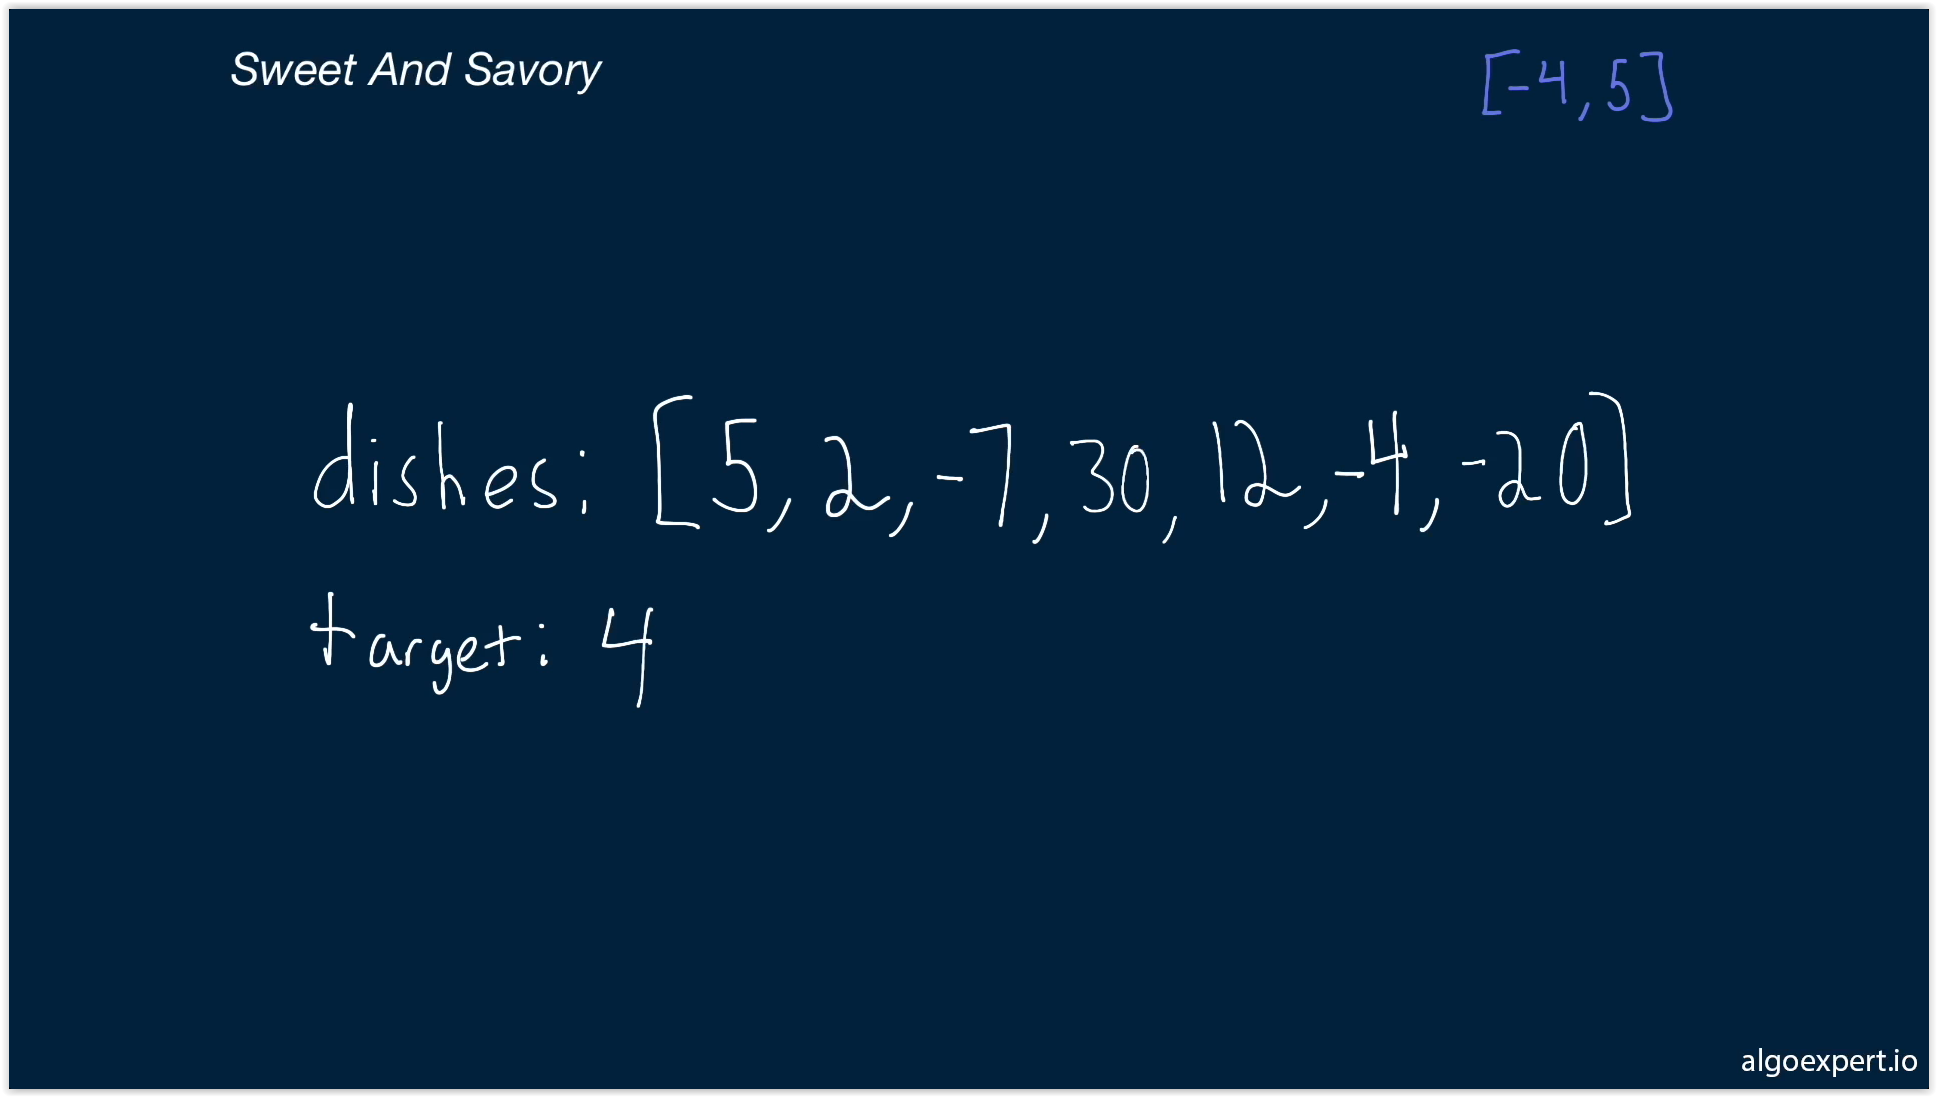 Sweet And Savory
[-4, 5]
dishes: [5, 2, -7, 30, 12, -4, -20]
target: 4
algoexpert.io